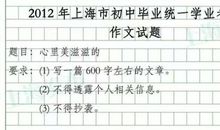 2012 年上海市初中毕业统一学业
作文试题
题目：心里美滋滋的
要求：(1) 写一篇 600 字左右的文章。
(2) 不得透露个人相关信息。
(3) 不得抄袭。